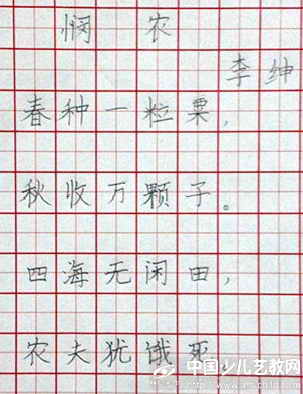 悯农
李绅
春种一粒粟，
秋收万颗子。
四海无闲田，
农夫犹饿死
中国少儿艺教网